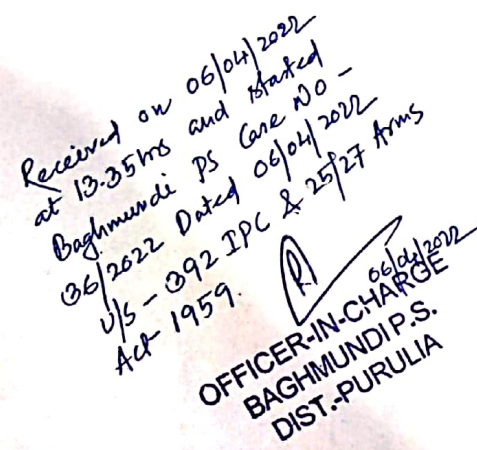 Received on 06/04/2022
at 13.35 hrs and started
Baghmundi PS Case NO -
36/2022 Dated 06/04/2022
U/S - 392 IPC & 25/27 Arms
Act 1959.
06/04/2022
OFFICER-IN-CHARGE
BAGHMUNDI P.S.
DIST.-PURULIA